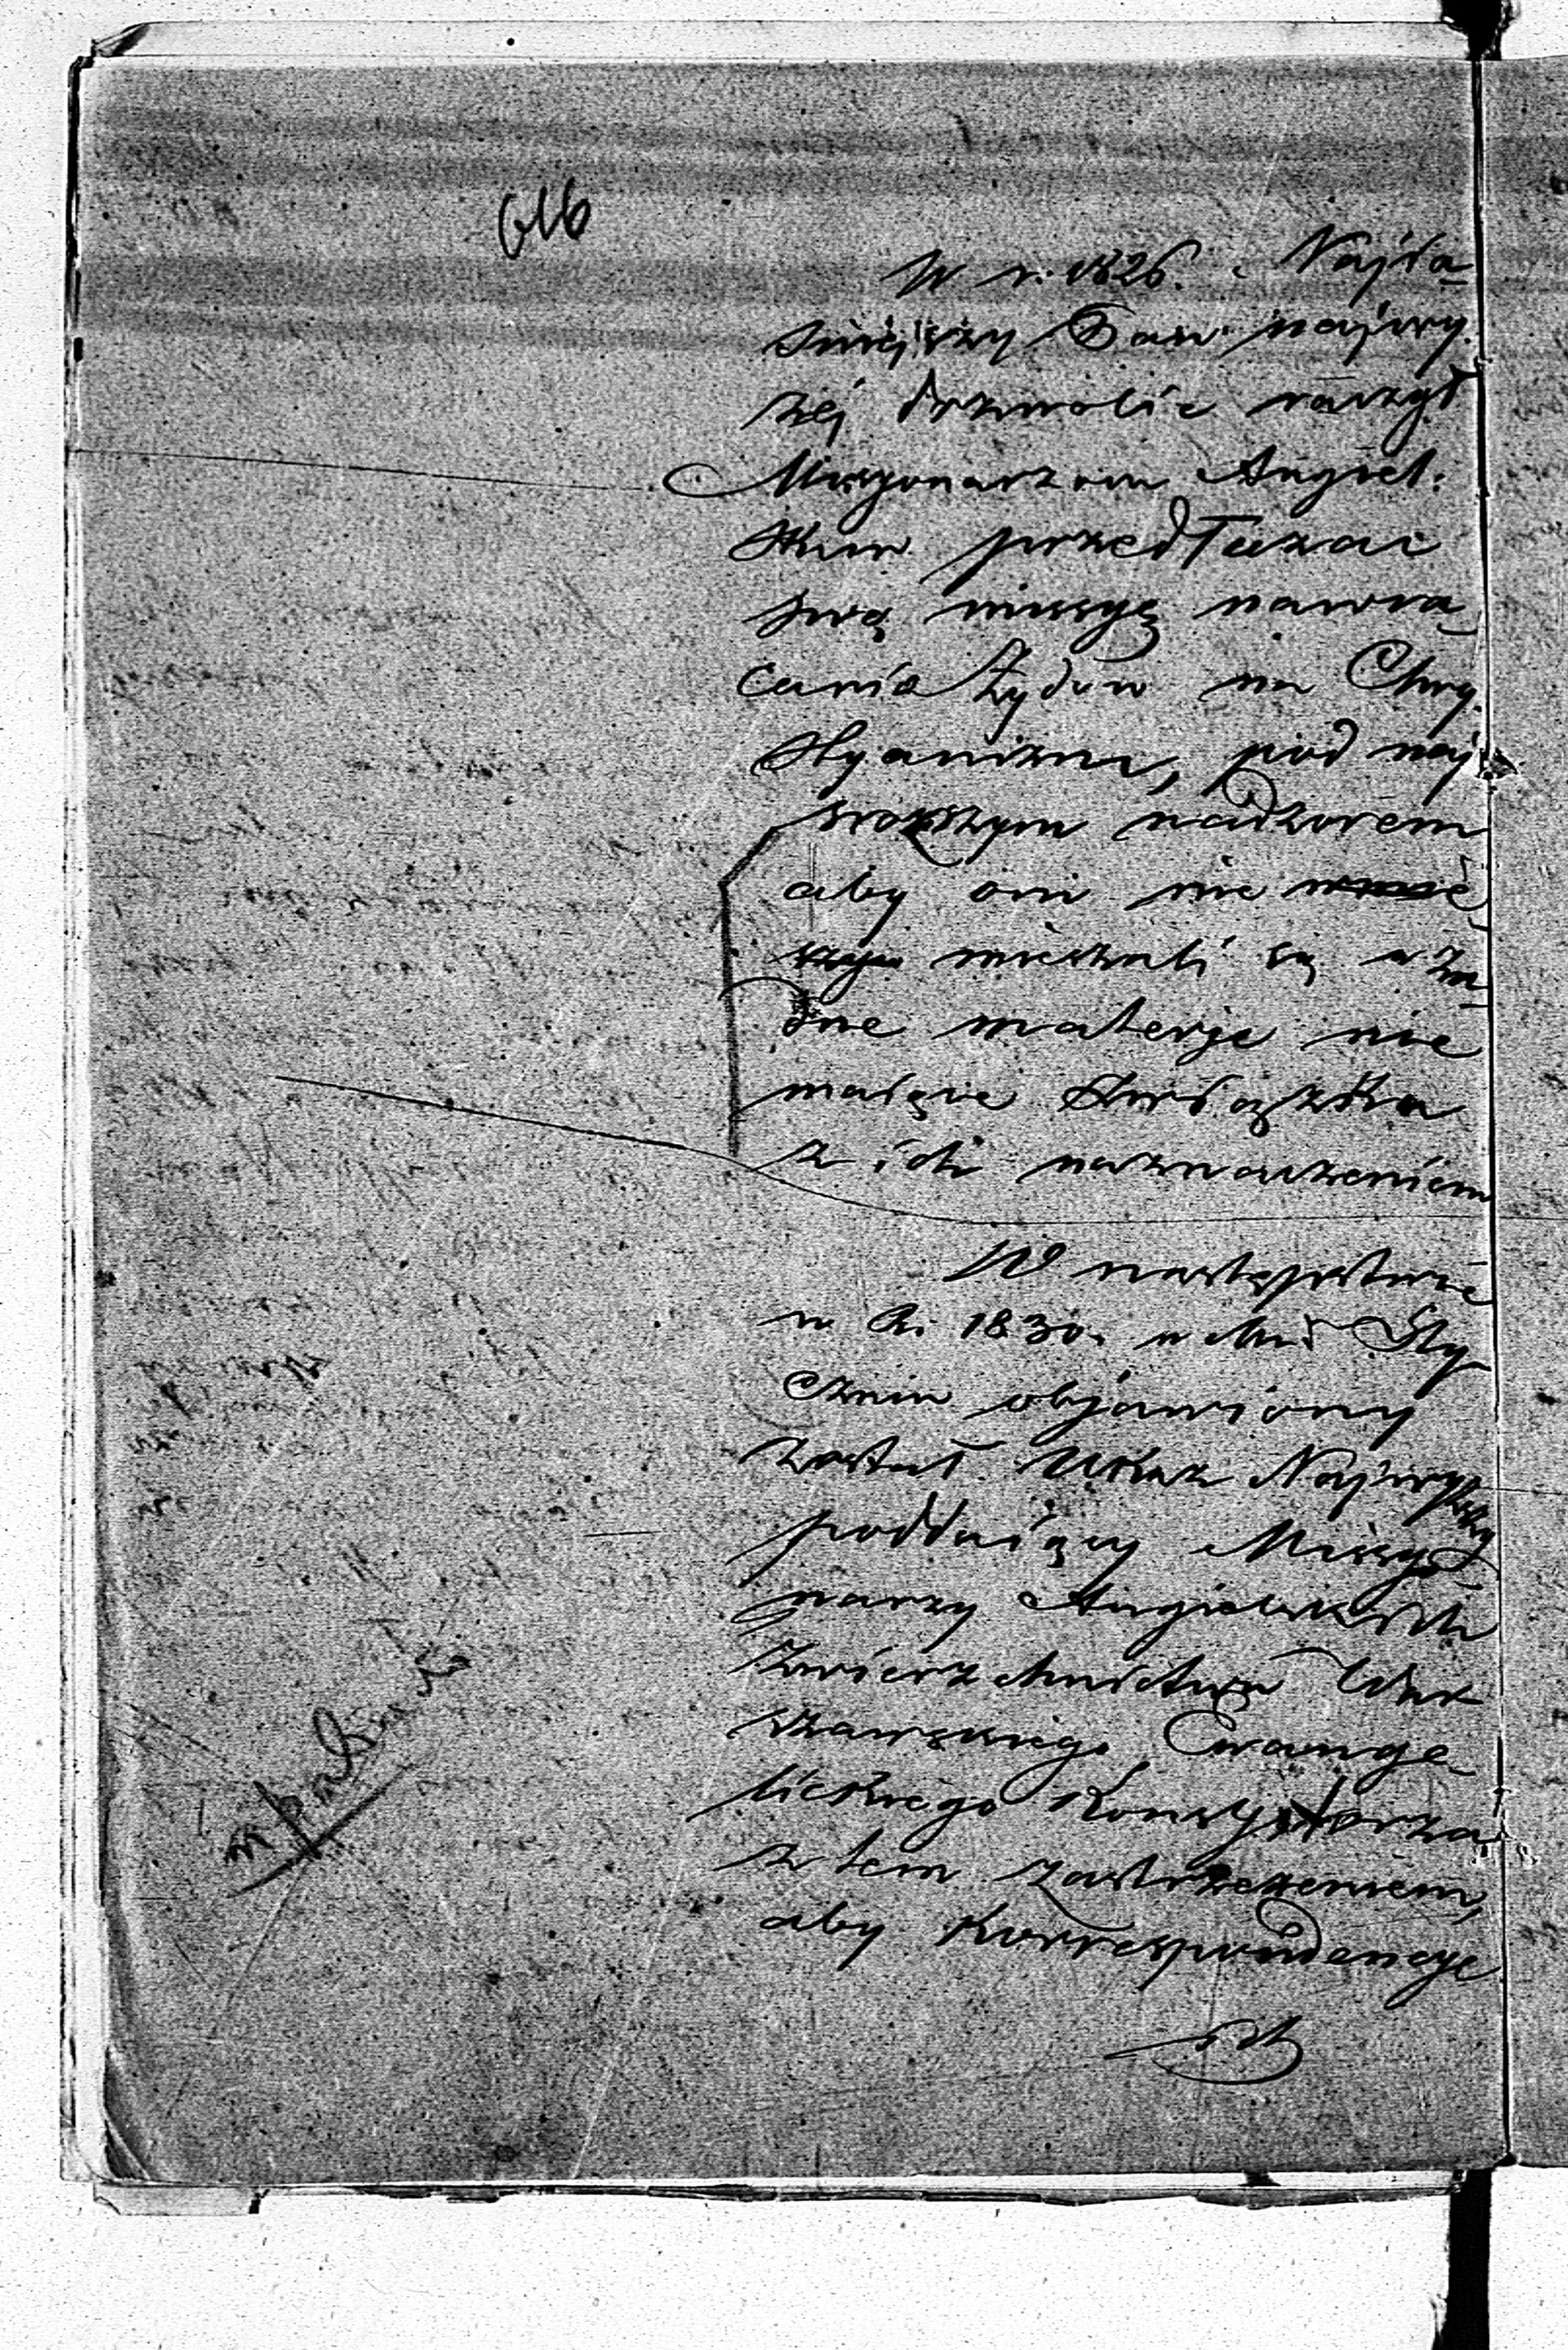 W r. 1826. Najja
śniejszy Pan najwy
żej dozwolić raczył
Missyonarzom Angiel:
skim przedłużać
swą missyę nawra
cania Żydów na Chry
styanizm, pod naj
sroższym nadzorem
aby oni nie
mieszali się w ża
dne materje nie
maiące związku
z ich naznaczeniem
W następstwie
w R. 1830. w Mcu Sty
czniu objawiony
został Ukaz Najwyższy
poddaiący Missyo
narzy Angielskich
zwierzchnictwu War
szawskiego Ewange
lickiego Konsystorza
z tem zastrzeżeniem,
aby korrespondencye